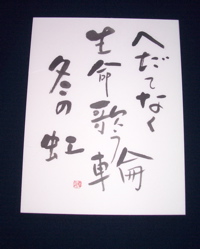 へだてなく
生命歌う輪
冬の虹